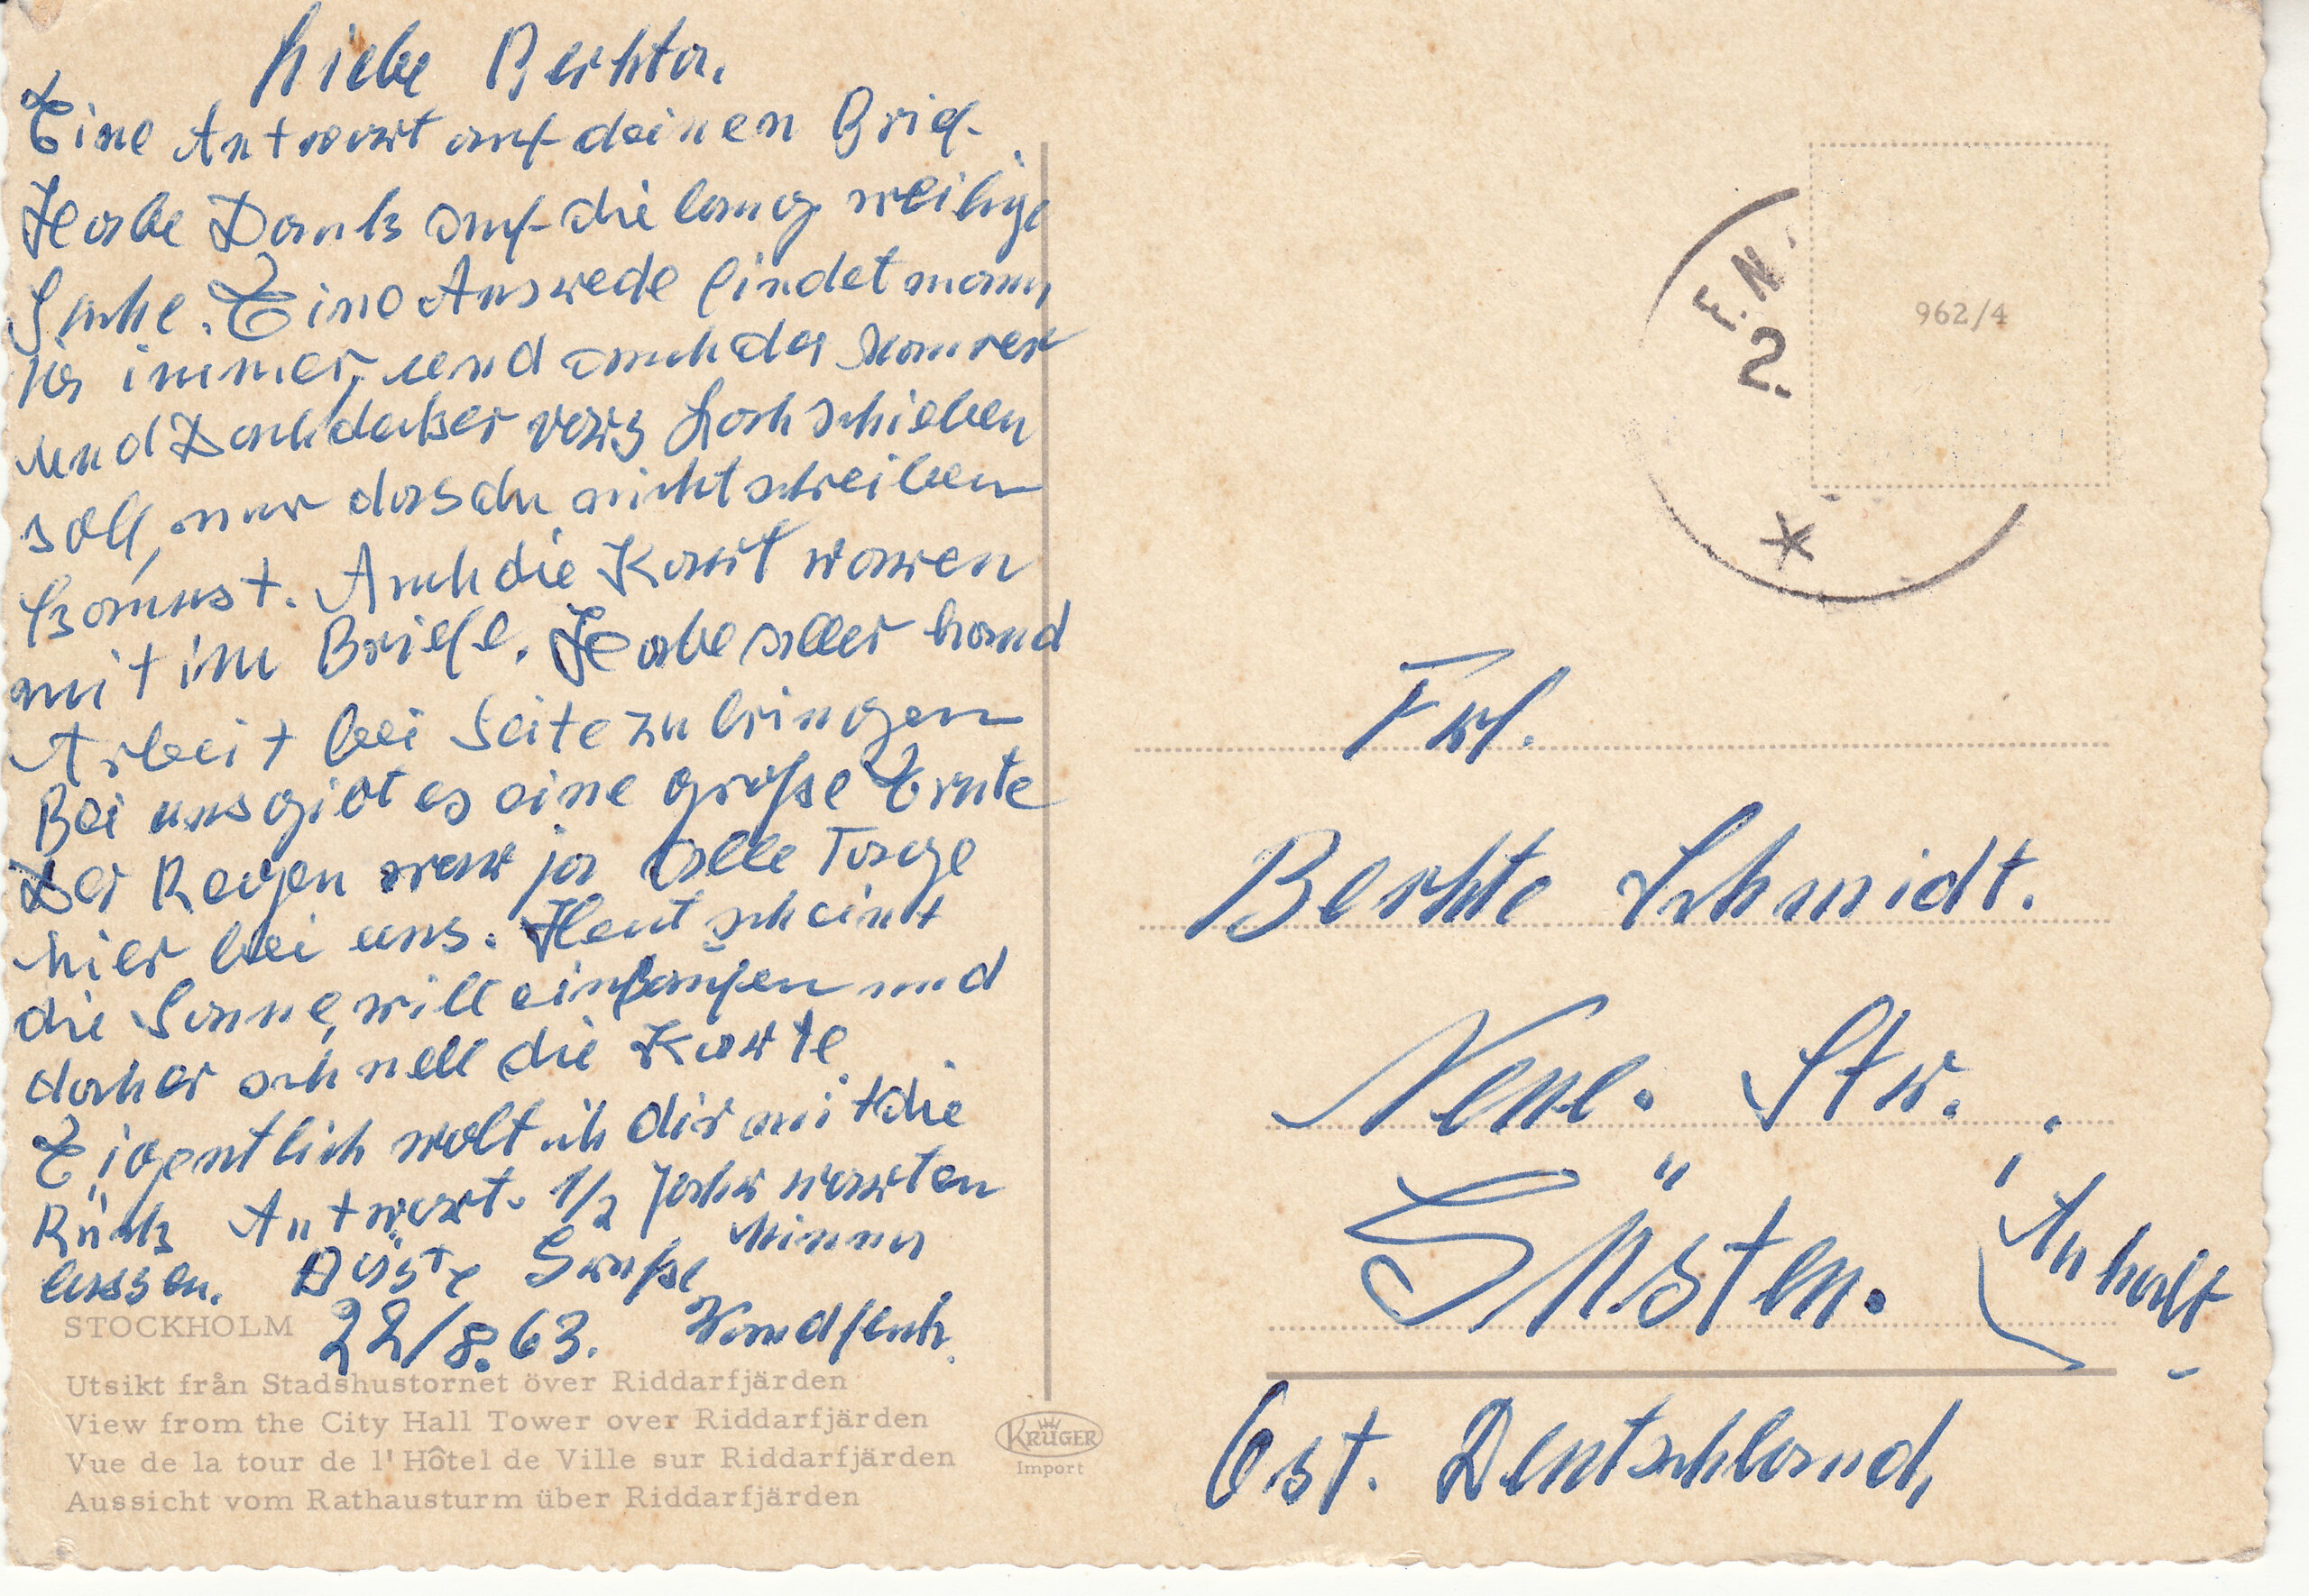 Liebe Berhta.
Eine Antwort auf deinen Brief.
Habe Dank auf die lang weilige
Sache. Eine Ausrede findet mann
ja immer, und auch da
und Dachdeker Loch schieben
soll, nur das du nicht schreiben
kannst. Auch die Kart waren
mit im Briefe. Habe aller hand
Arbeit bei Seite zu bringen
Bei uns gibt es eine große Ernte
Der Regen war ja alle Tage
hier bei uns. Heut scheint
die Sonne, will einkaufen und
daher schnell die Karte.
Eigentlich wolt ich dir mit die
Rück Antwort. 1/2 Jahr warten
lassen. Grüße Minna
22/8.63.
STOCKHOLM
Utsikt från Stadshustornet över Riddarfjärden
View from the City Hall Tower over Riddarfjärden
Vue de la tour de l'Hôtel de Ville sur Riddarfjärden
Aussicht vom Rathausturm über Riddarfjärden
KRÜGER
Import
F.N.
2.
962/4
Frl.
Berhte Schmidt.
Neue. Str.
Güsten. Anhalt
Ost. Deutschland,